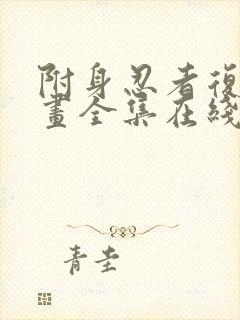 附身忍者復
畫全集在綫
青圭